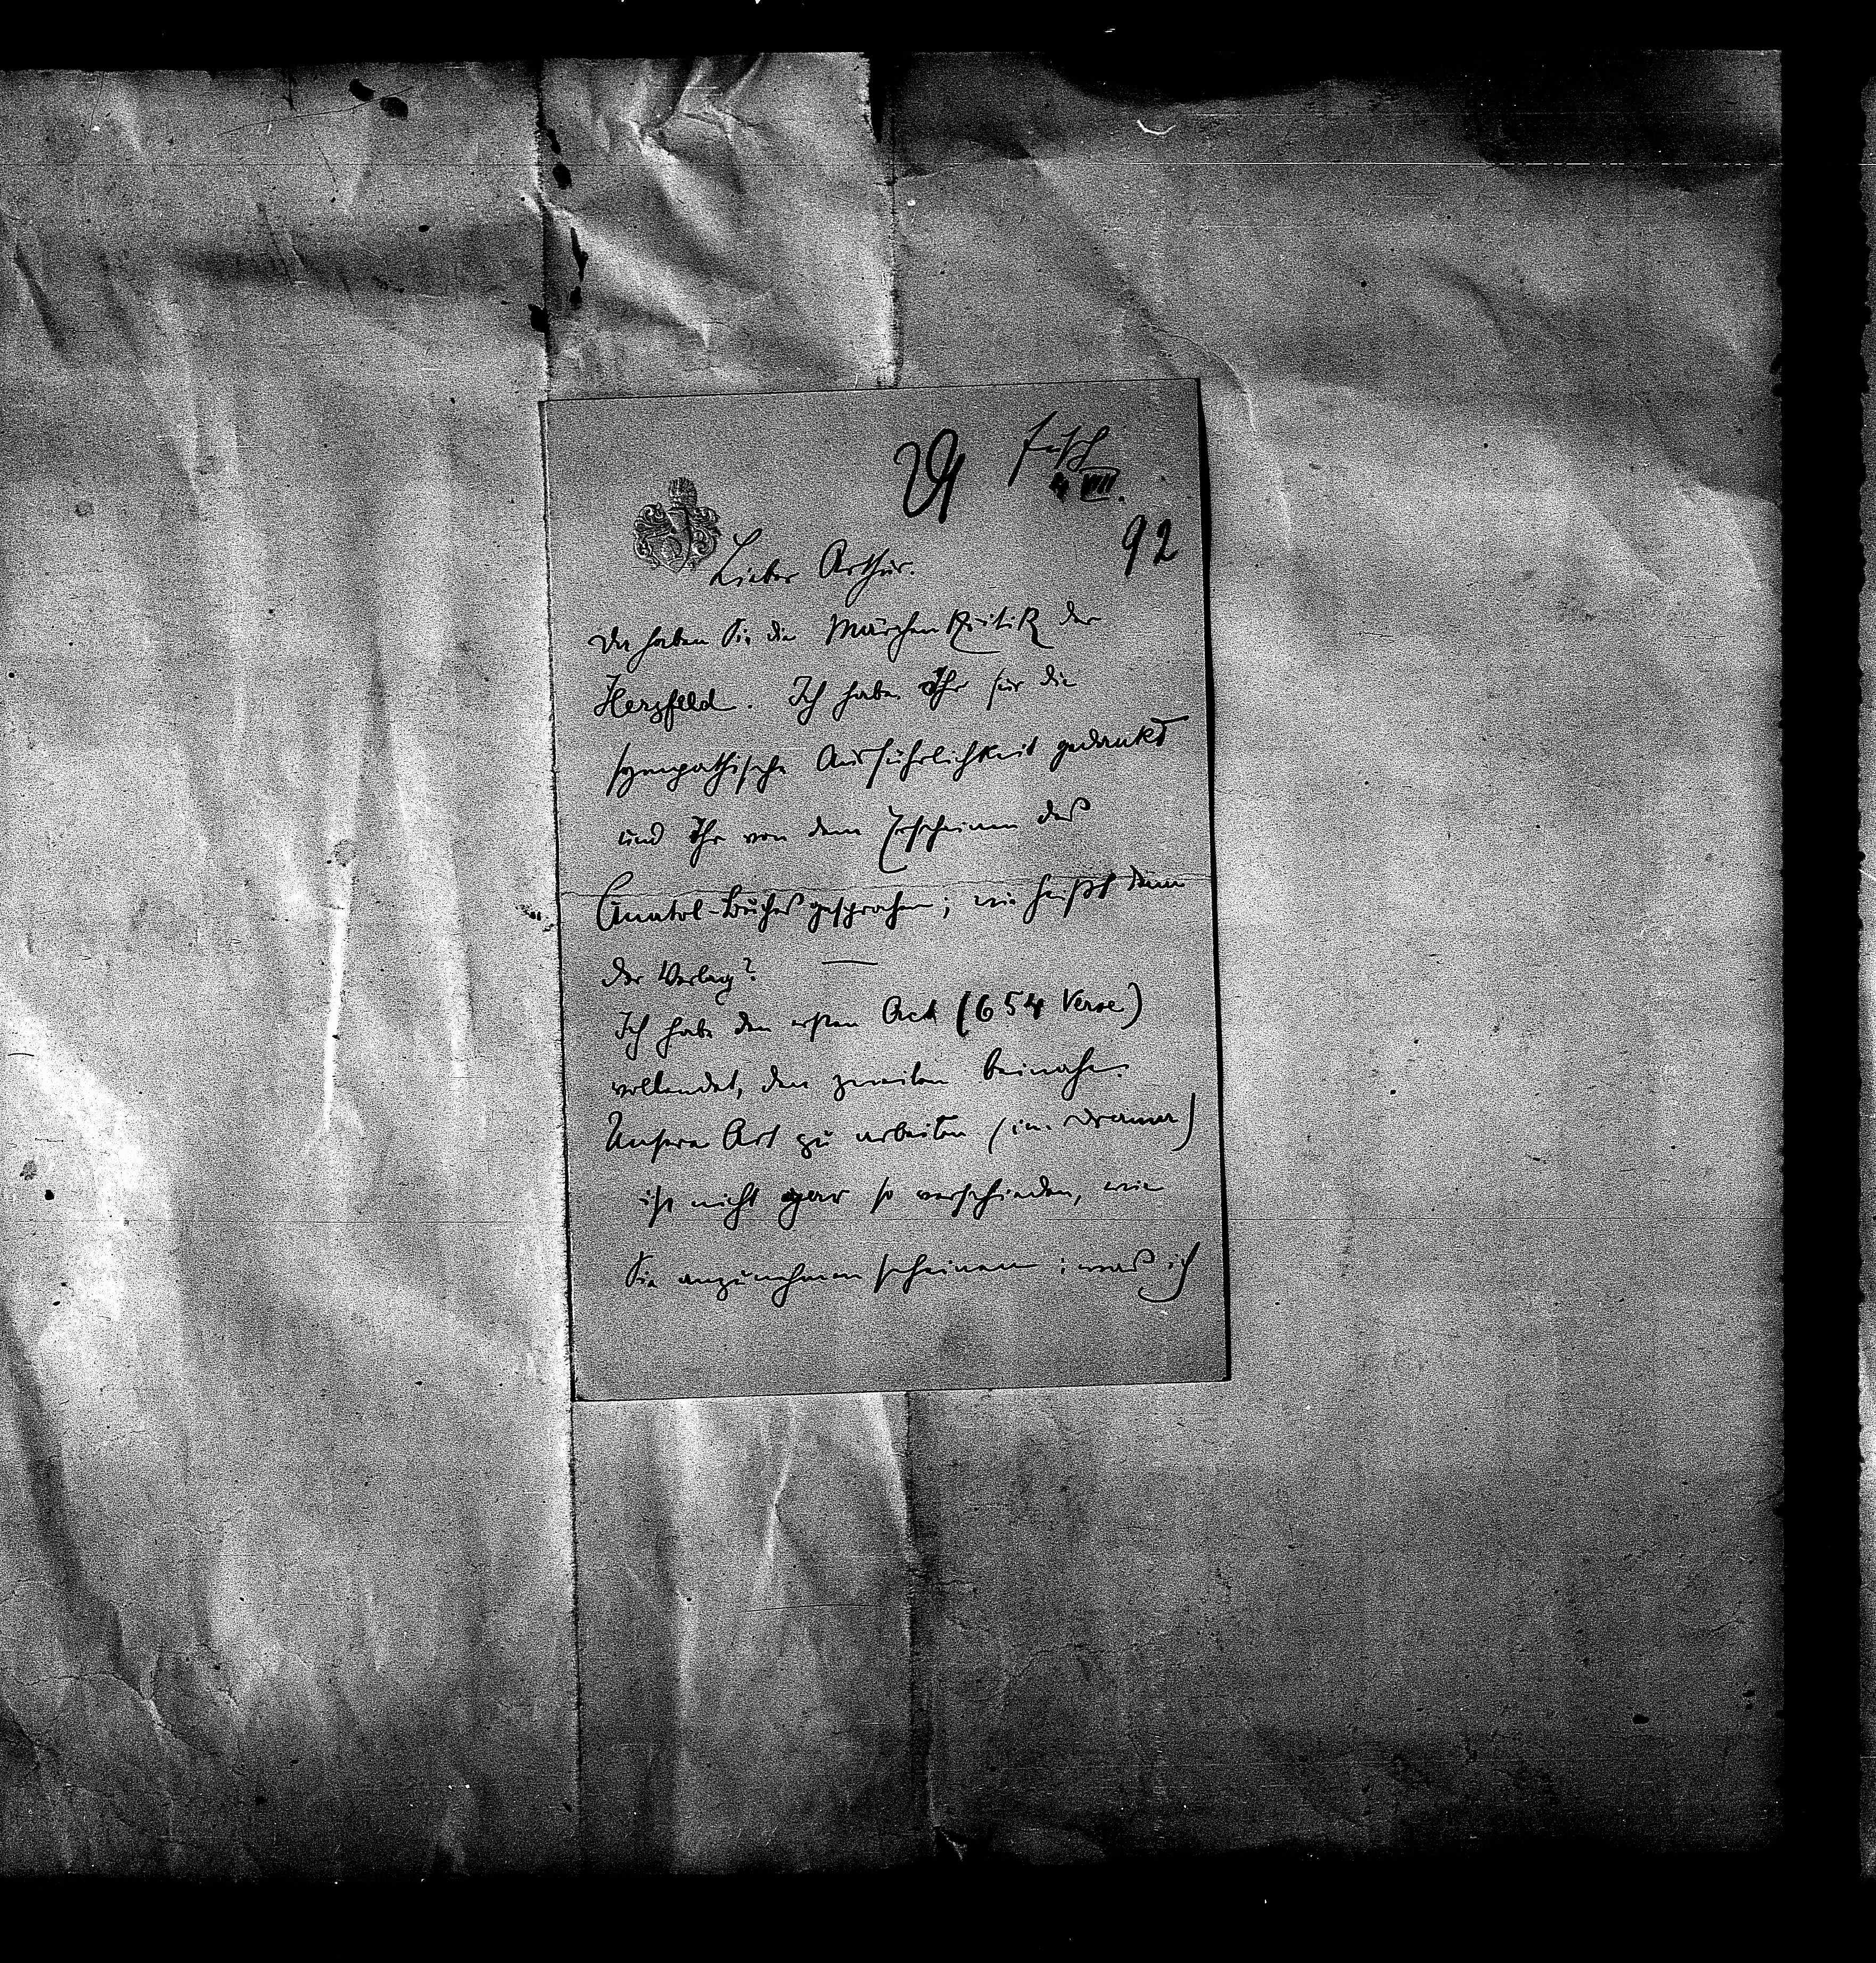 29 Fusch
4 VII.
92
Lieber Arthur.
Da haben Sie die Märchenkritik der
Herzfeld. Ich habe Ihr für die
sympathische Ausführlichkeit gedankt
und Ihr von dem Erscheinen des
Anatol-Buches gesprochen; wie heißt denn
der Verlag? —
Ich habe den ersten Act (654 Verse)
vollendet, den zweiten beinahe.
Unsere Art zu arbeiten (im Drama)
ist nicht gar so verschieden, wie
Sie anzunehmen scheinen; was ich